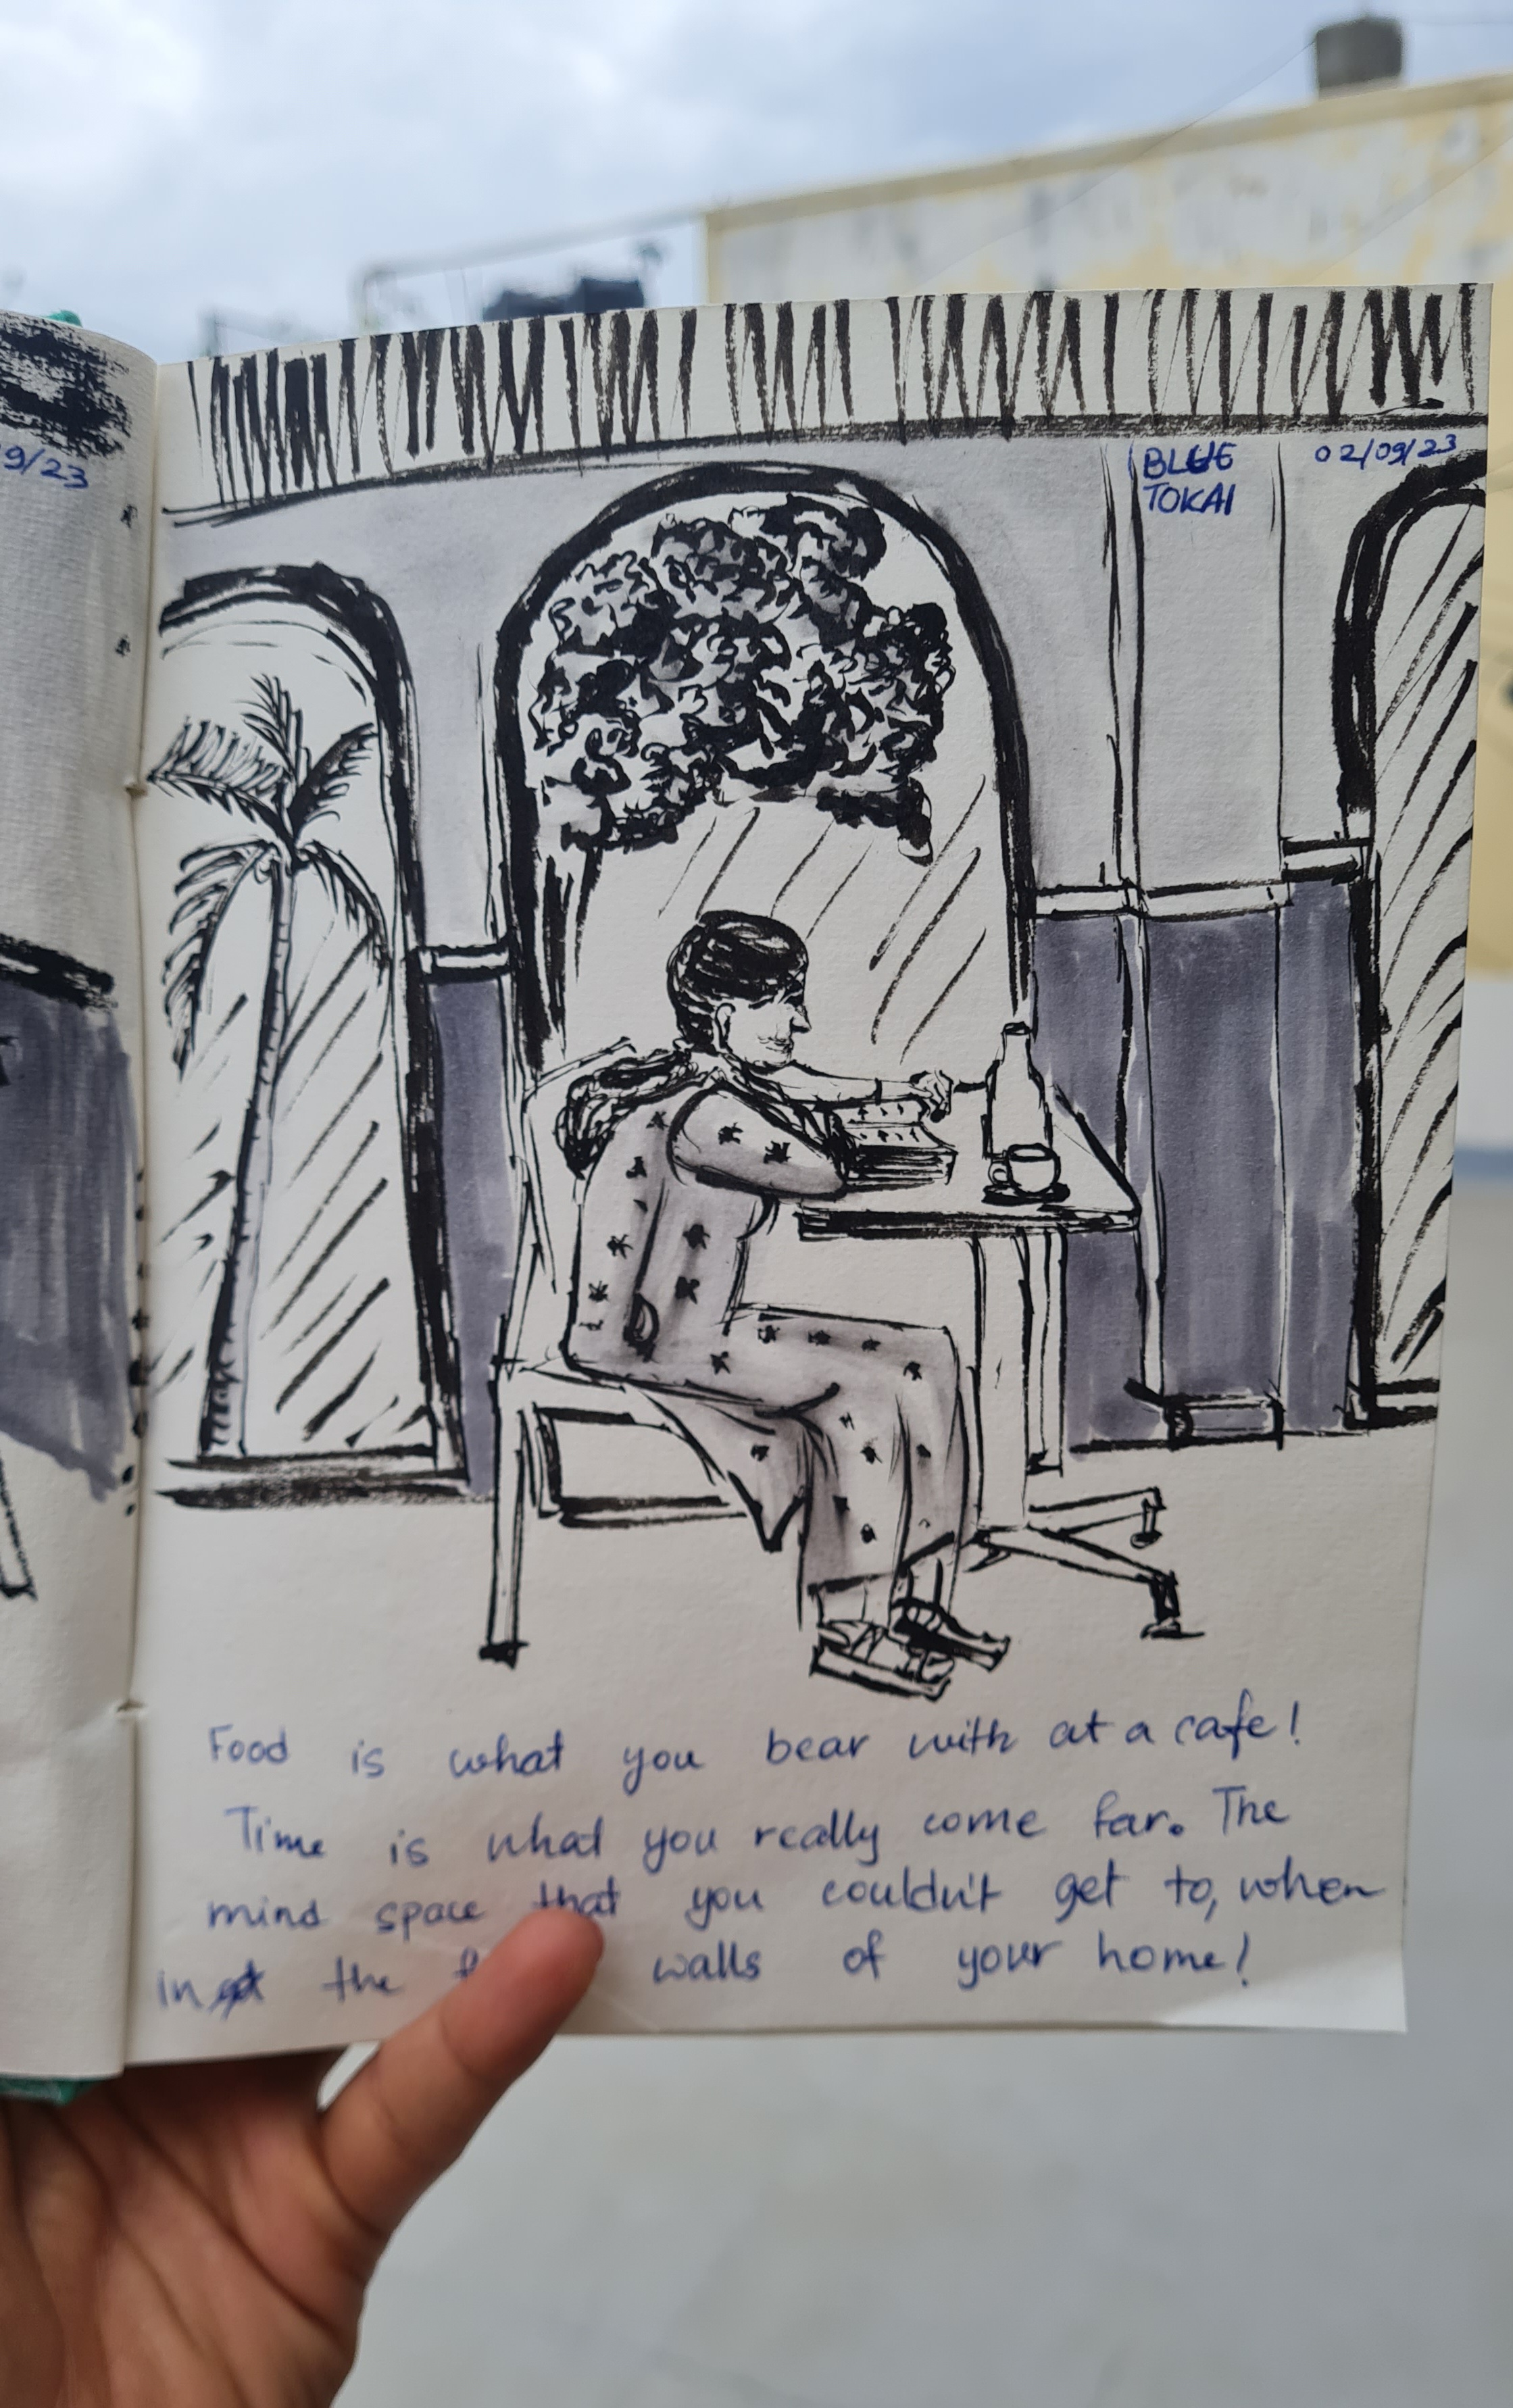 9/23
BLUE
TOKAI
02/09/23
Food is what you bear with at a cafe!
Time is what you really come for. The
mind space that you couldn't get to, when
in the walls of your home!